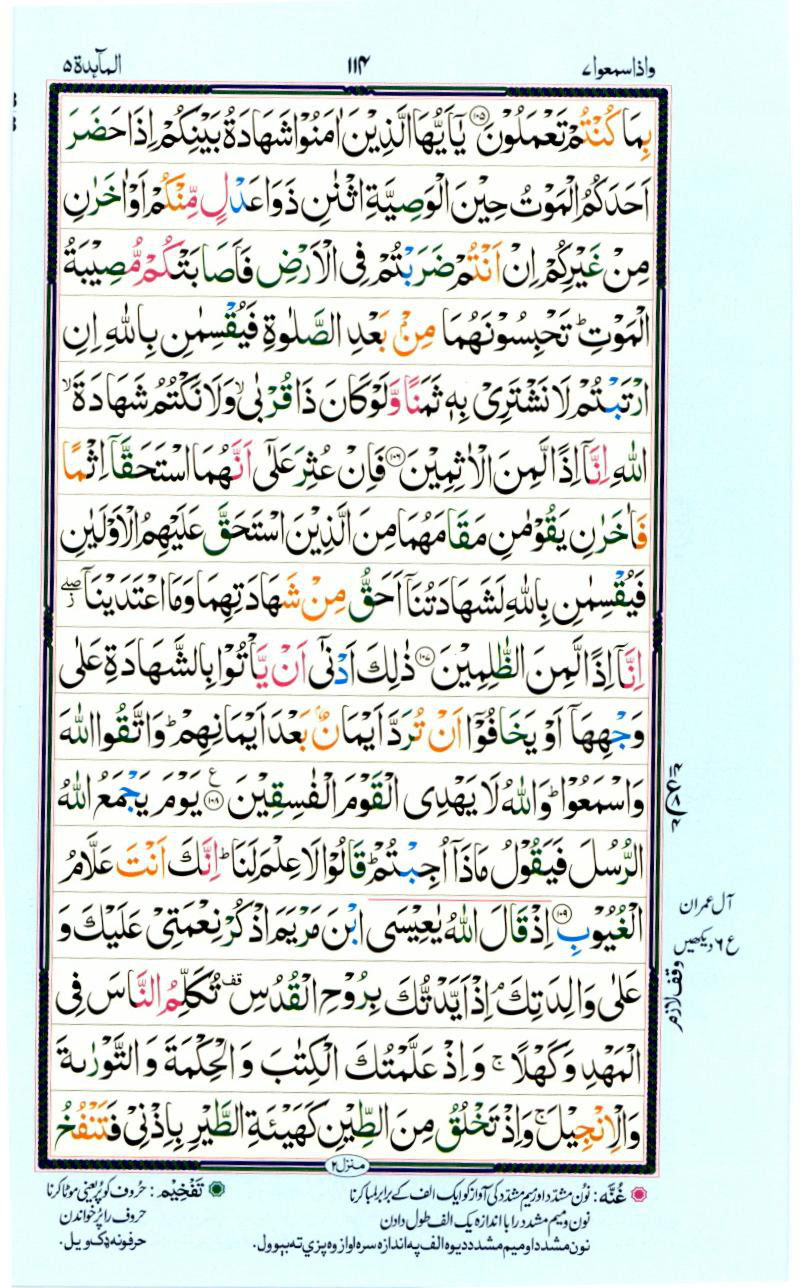 واذاسمعوا ۷ ۱۱۴ المآىدة ۵
بِمَا كُنْتُمْ تَعْمَلُوْنَ ۝۱۰۵ يٰۤاَيُّهَا الَّذِيْنَ اٰمَنُوْا شَهَادَةُ بَيْنِكُمْ اِذَا حَضَرَ
اَحَدَكُمُ الْمَوْتُ حِيْنَ الْوَصِيَّةِ اثْنٰنِ ذَوَا عَدْلٍ مِّنْكُمْ اَوْ اٰخَرٰنِ
مِنْ غَيْرِكُمْ اِنْ اَنْتُمْ ضَرَبْتُمْ فِى الْاَرْضِ فَاَصَابَتْكُمْ مُّصِيْبَةُ
الْمَوْتِ ؕ تَحْبِسُوْنَهُمَا مِنْۢ بَعْدِ الصَّلٰوةِ فَيُقْسِمٰنِ بِاللّٰهِ اِنِ
ارْتَبْتُمْ لَا نَشْتَرِىْ بِهٖ ثَمَنًا وَّلَوْ كَانَ ذَا قُرْبٰى ۙ وَلَا نَكْتُمُ شَهَادَةَ ۙ
اللّٰهِ اِنَّاۤ اِذًا لَّمِنَ الْاٰثِمِيْنَ ۝۱۰۶ فَاِنْ عُثِرَ عَلٰۤى اَنَّهُمَا اسْتَحَقَّاۤ اِثْمًا
فَاٰخَرٰنِ يَقُوْمٰنِ مَقَامَهُمَا مِنَ الَّذِيْنَ اسْتَحَقَّ عَلَيْهِمُ الْاَوْلَيٰنِ
فَيُقْسِمٰنِ بِاللّٰهِ لَشَهَادَتُنَاۤ اَحَقُّ مِنْ شَهَادَتِهِمَا وَمَا اعْتَدَيْنَاۤ ۖ ز
اِنَّاۤ اِذًا لَّمِنَ الظّٰلِمِيْنَ ۝۱۰۷ ذٰلِكَ اَدْنٰۤى اَنْ يَّاْتُوْا بِالشَّهَادَةِ عَلٰى
وَجْهِهَاۤ اَوْ يَخَافُوْۤا اَنْ تُرَدَّ اَيْمَانٌۢ بَعْدَ اَيْمَانِهِمْ ؕ وَاتَّقُوا اللّٰهَ
وَاسْمَعُوْا ؕ وَاللّٰهُ لَا يَهْدِى الْقَوْمَ الْفٰسِقِيْنَ ۝۱۰۸ ع يَوْمَ يَجْمَعُ اللّٰهُ
الرُّسُلَ فَيَقُوْلُ مَاذَاۤ اُجِبْتُمْ ؕ قَالُوْا لَا عِلْمَ لَنَا ؕ اِنَّكَ اَنْتَ عَلَّامُ
الْغُيُوْبِ ۝۱۰۹ اِذْ قَالَ اللّٰهُ يٰعِيْسَى ابْنَ مَرْيَمَ اذْكُرْ نِعْمَتِىْ عَلَيْكَ وَ
عَلٰى وَالِدَتِكَ ۘ اِذْ اَيَّدْتُّكَ بِرُوْحِ الْقُدُسِ قف تُكَلِّمُ النَّاسَ فِى
الْمَهْدِ وَكَهْلًا ۚ وَاِذْ عَلَّمْتُكَ الْكِتٰبَ وَالْحِكْمَةَ وَالتَّوْرٰىةَ
وَالْاِنْجِيْلَ ۚ وَاِذْ تَخْلُقُ مِنَ الطِّيْنِ كَهَيْئَةِ الطَّيْرِ بِاِذْنِىْ فَتَنْفُخُ
آل عمران
ع ٦ دیکھیں
وقف لازم
منزل ۲
غُنَّه : نُون مشدّد اور میم مشدّد کی آواز کو ایک الف کے برابر لمبا کرنا تَفْخِيْم : حُروف کو پُر یعنی موٹا کرنا
نون و میم مشدد را با اندازه یک الف طول دادن حروف را پُر خواندن
نون مشدد او میم مشدد د یوه الف په اندازه سره اواز وه پزې ته بېوول. حرفونه ډک ویل.